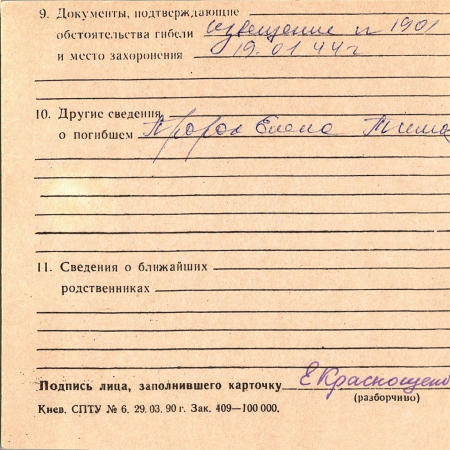 9. Документы, подтверждающие
обстоятельства гибели извещение № 1901
и место захоронения 19.01.44 г
10. Другие сведения
о погибшем Пророк Елена Тима
11. Сведения о ближайших
родственниках
Подпись лица, заполнившего карточку ЕКраснощеко
(разборчиво)
Киев. СПТУ № 6. 29. 03. 90 г. Зак. 409—100 000.